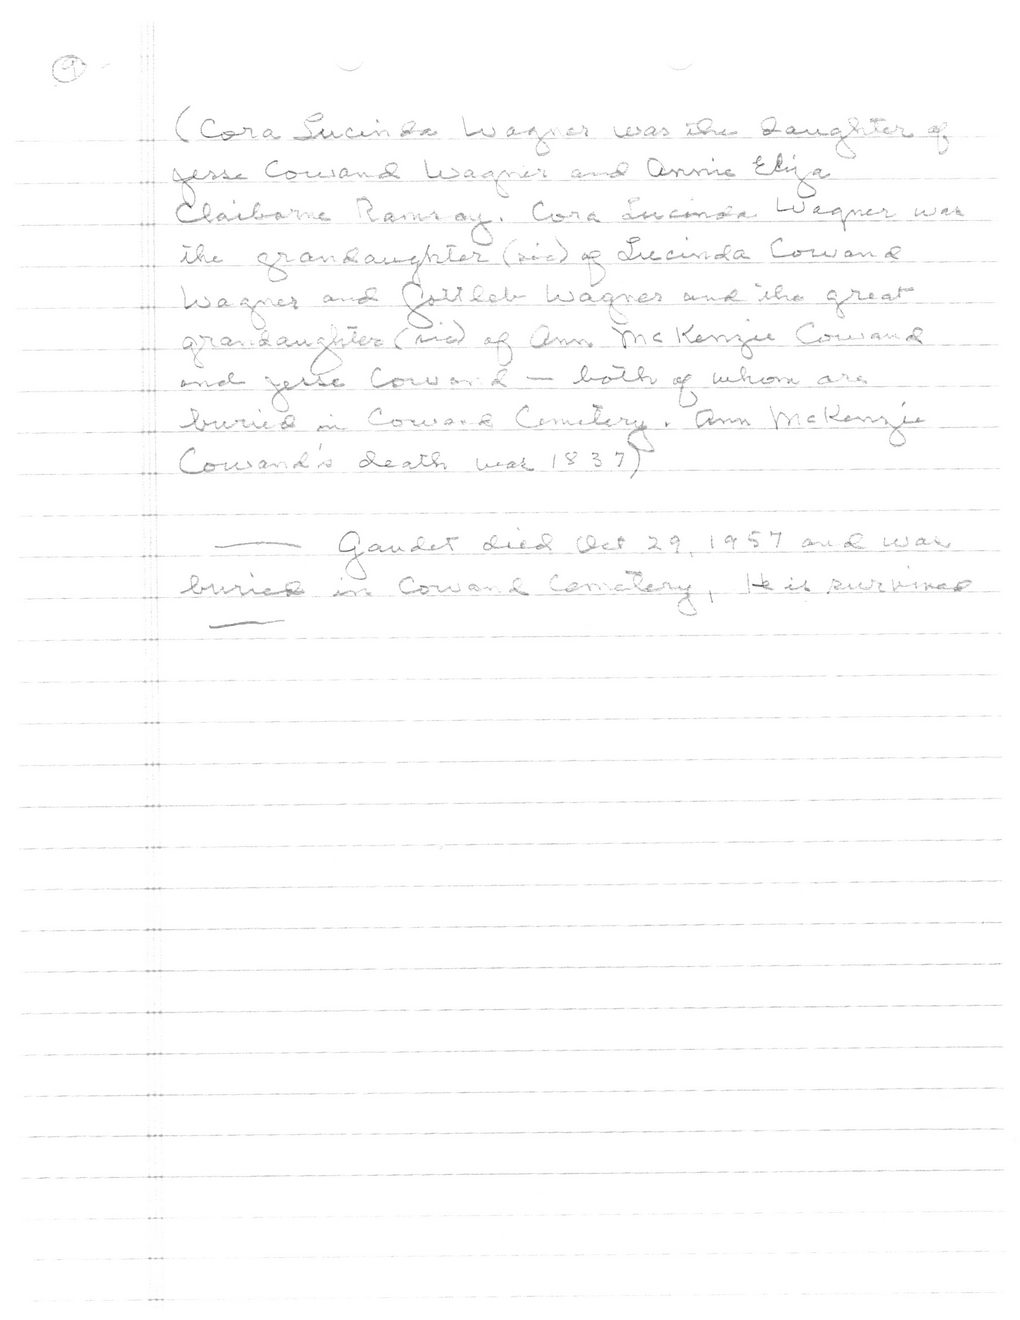 9
(Cora Lucinda Wagner was the daughter of
Jesse Cowand Wagner and Annie Eliza
Claiborne Ramsay. Cora Lucinda Wagner was
the grandaughter (sic) of Lucinda Cowand
Wagner and Gottleb Wagner and the great
grandaughter (sic) of Ann McKenzie Cowand
and Jesse Cowand — both of whom are
buried in Cowand Cemetery. Ann McKenzie
Cowand's death was 1837)
—— Gaudet died Oct 29, 1957 and was
buried in Cowand Cemetery, He is survived
——